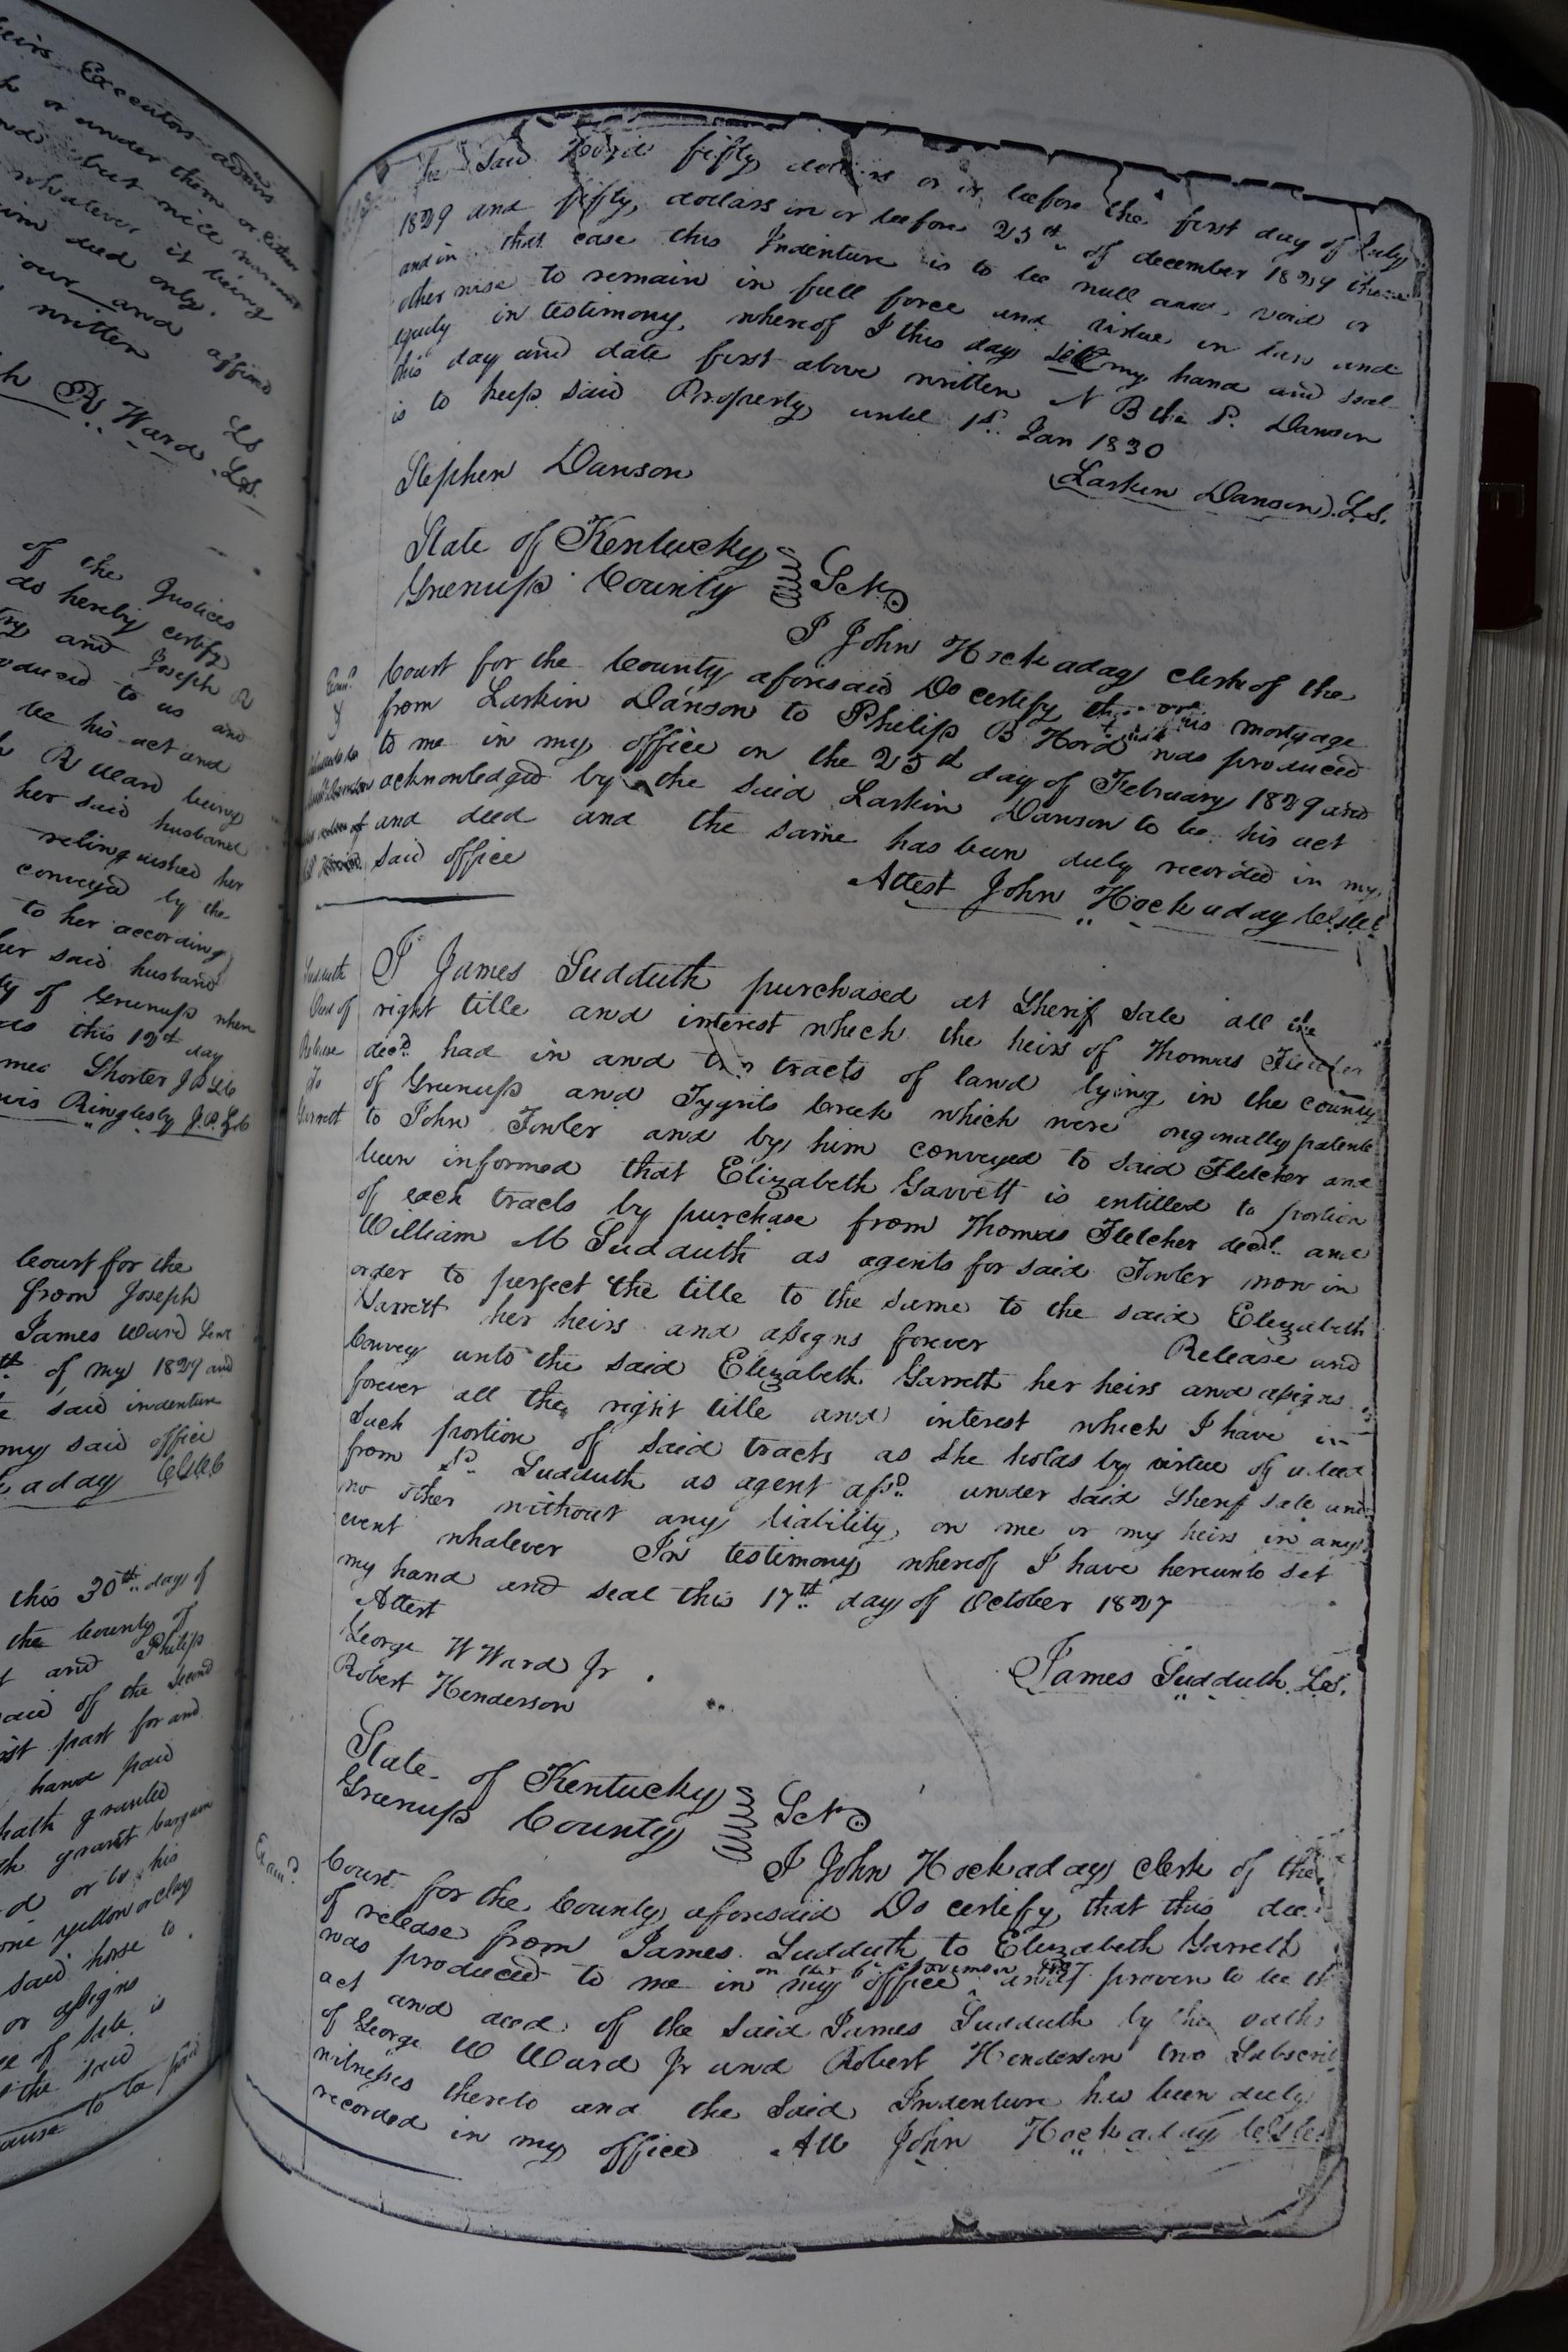 eirs Executors admrs
h or under them or either
nd but nice warrant
whatever it being
im deed only.
our and affixed
written
h R Ward LS
LS.
of the Justices
do hereby certify
try and Joseph R
oduced to us and
be his act and
h R Ward being
her said husband
relinquished her
conveyed by the
to her according
her said husband
ty of Greenup when
this 12th day
mes Shorter J P G C
Ringlesby J.P.G.C
Court for the
from Joseph
James Ward
th of my 1827 and
said indenture
my said office
k aday ClGCC
this 30th day of
the County of
and Philip
said of the second
st part for and
hand paid
hath granted
grant bargain
d or to his
one yellow or clay
said horse to
or assigns
ce of sale is
the said
ause to be paid
the said Hord fifty dollars on or before the first day of July
1829 and fifty dollars in or before 25th of december 1829 then
and in that case this Indenture is to be null and void or
otherwise to remain in full force and virtue in law and
equity in testimony whereof I this day set my hand and seal
this day and date first above written N B the S. Danson
is to keep said Property until 1st Jan 1830
Stephen Danson Larkin Danson L.S.
State of Kentucky
Greenup County Sct
I John Hockaday clerk of the
Court for the County aforesaid Do certify this mortgage
from Larkin Danson to Philip B Hord was produced
to me in my office on the 25th day of February 1829 and
acknowledged by the said Larkin Danson to be his act
and deed and the same has been duly recorded in my
said office
Attest John Hockaday ClGCC
Sudduth
Deed of
Release
To
Garrett
I James Sudduth purchased at Sherif Sale all the
right title and interest which the heirs of Thomas Fletcher
decd. had in and two tracts of land lying in the county
of Greenup and Tygrits Creek which were originally patente
to John Fowler and by him conveyed to said Fletcher and
been informed that Elizabeth Garrett is entitled to portion
of each tracts by purchase from Thomas Fletcher decd. and
William M Sudduth as agents for said Fowler now in
order to perfect the title to the same to the said Elizabeth
Garrett her heirs and assigns forever Release and
Convey unto the said Elizabeth Garrett her heirs and assigns
forever all the right title and interest which I have in
Such portion of said tracts as she holds by virtue of a deed
from sd. Sudduth as agent afsd. under said Sherif sale and
no other without any liability on me or my heirs in any
event whatever In testimony whereof I have hereunto set
my hand and seal this 17th day of October 1827
Attest
George W Ward Jr
Robert Henderson
James Sudduth L.S.
State of Kentucky
Greenup County Sct
Exam.d
I John Hockaday clerk of the
Court for the County aforesaid Do certify that this dee
of release from James Sudduth to Elizabeth Garrett
on the 6th november 1827
was produced to me in my office and proven to be the
act and deed of the said James Sudduth by the oaths
of George W Ward Jr and Robert Henderson two Subscri
witnesses thereto and the said Indenture has been duly
recorded in my office Att John Hockaday ClGCC